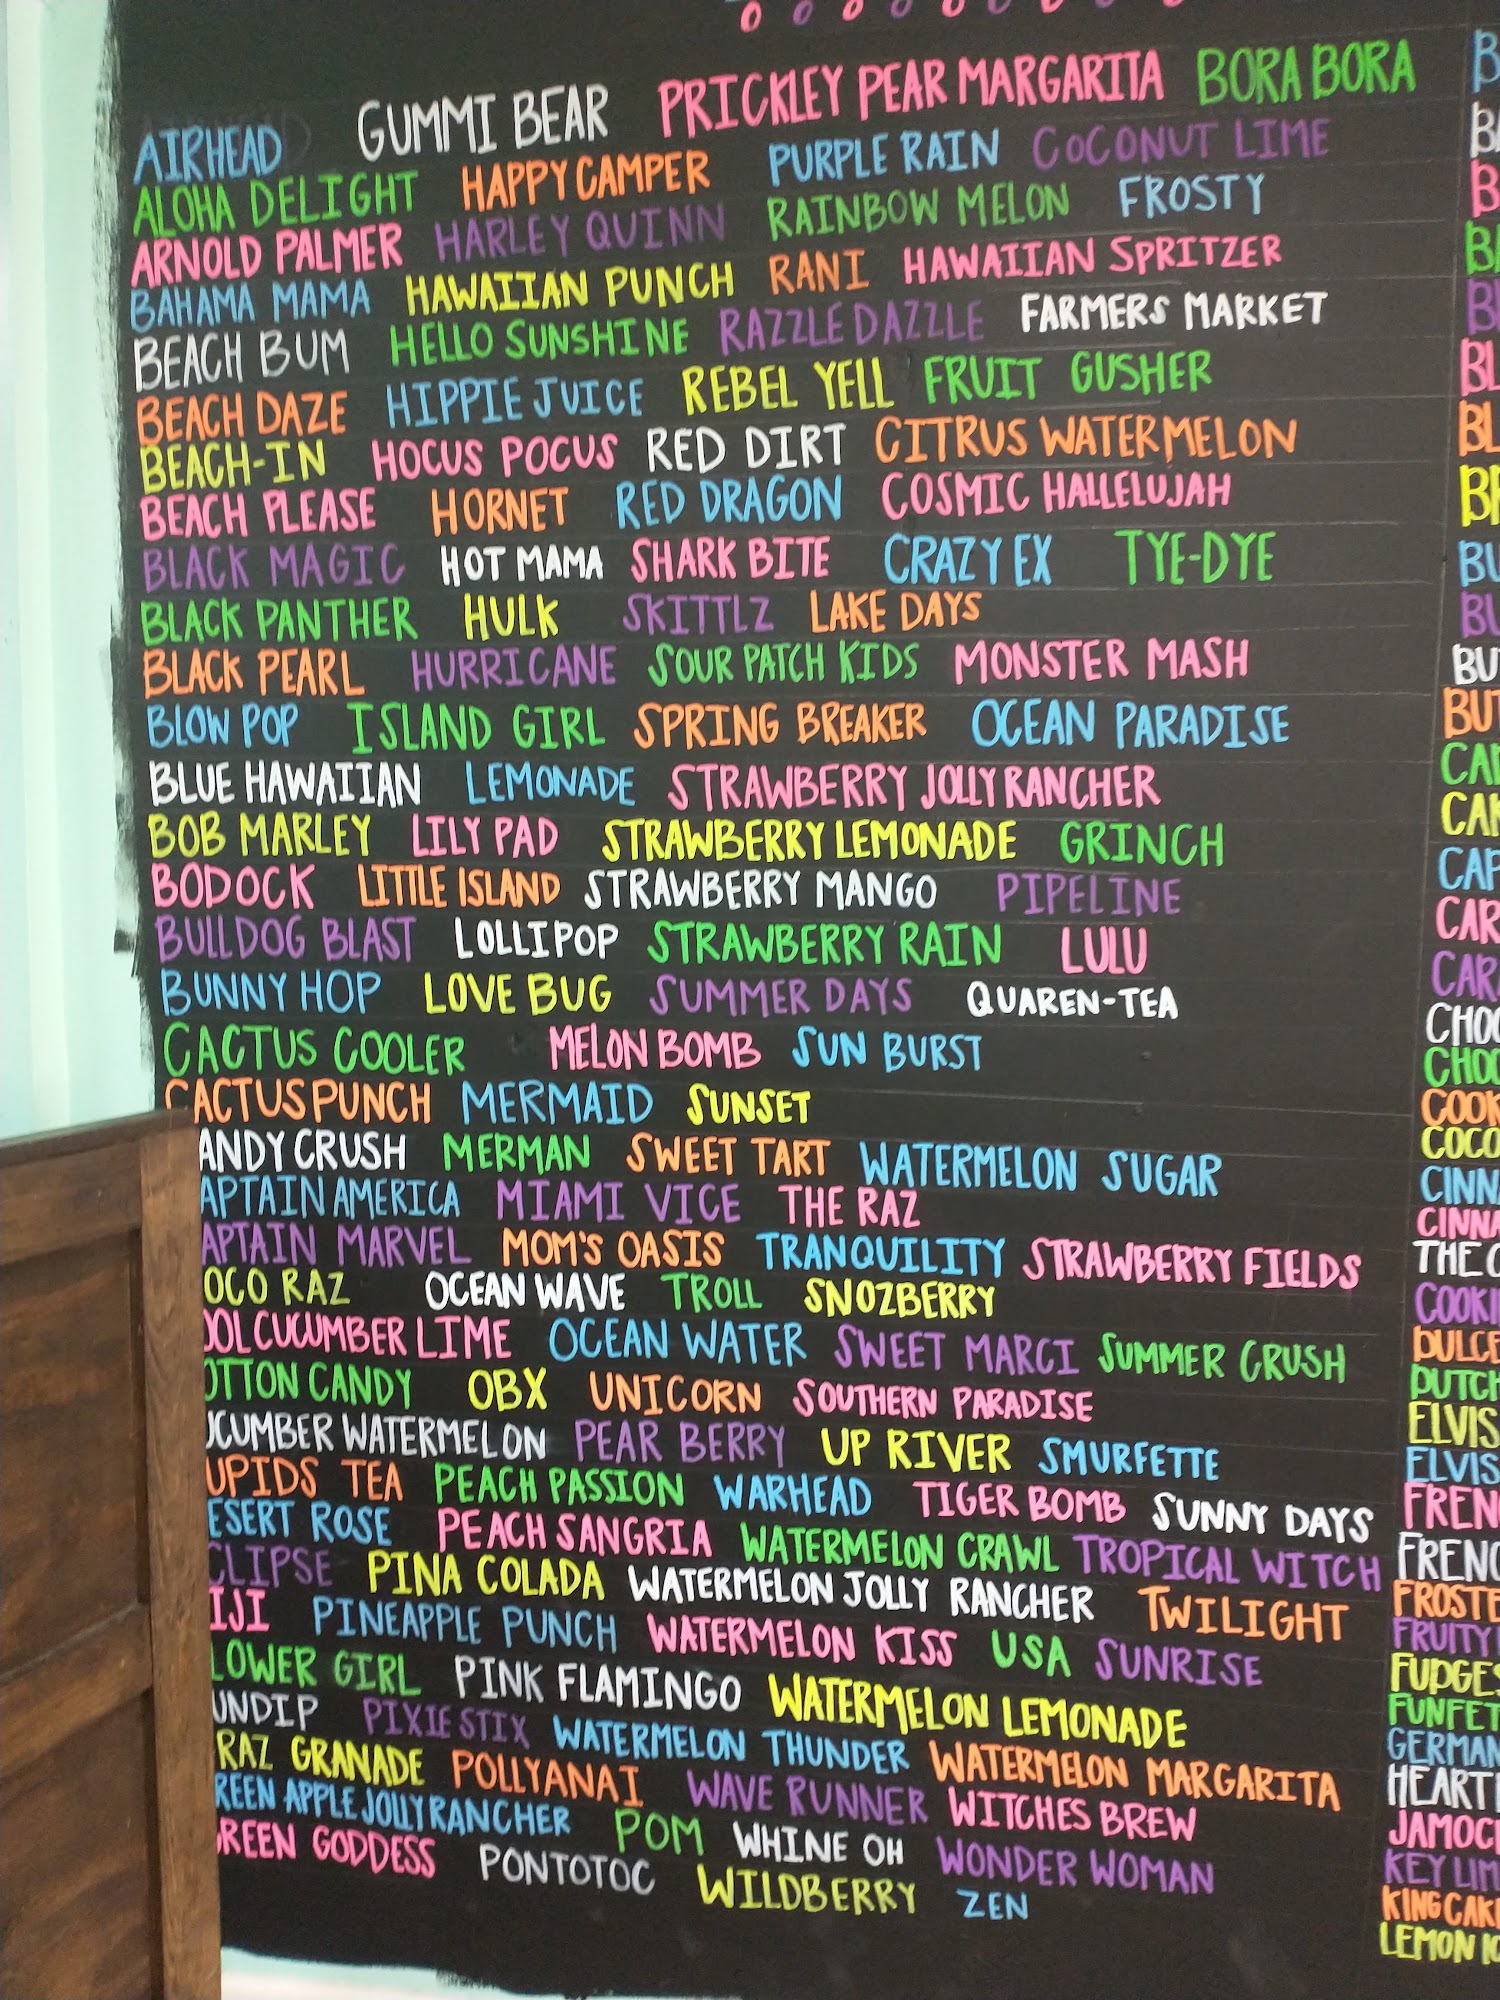 AIRHEAD GUMMI BEAR PRICKLEY PEAR MARGARITA BORA BORA
ALOHA DELIGHT HAPPY CAMPER PURPLE RAIN COCONUT LIME
ARNOLD PALMER HARLEY QUINN RAINBOW MELON FROSTY
BAHAMA MAMA HAWAIIAN PUNCH RANI HAWAIIAN SPRITZER
BEACH BUM HELLO SUNSHINE RAZZLE DAZZLE FARMERS MARKET
BEACH DAZE HIPPIE JUICE REBEL YELL FRUIT GUSHER
BEACH-IN HOCUS POCUS RED DIRT CITRUS WATERMELON
BEACH PLEASE HORNET RED DRAGON COSMIC HALLELUJAH
BLACK MAGIC HOT MAMA SHARK BITE CRAZY EX TYE-DYE
BLACK PANTHER HULK SKITTLZ LAKE DAYS
BLACK PEARL HURRICANE SOUR PATCH KIDS MONSTER MASH
BLOW POP ISLAND GIRL SPRING BREAKER OCEAN PARADISE
BLUE HAWAIIAN LEMONADE STRAWBERRY JOLLY RANCHER
BOB MARLEY LILY PAD STRAWBERRY LEMONADE GRINCH
BODOCK LITTLE ISLAND STRAWBERRY MANGO PIPELINE
BULLDOG BLAST LOLLIPOP STRAWBERRY RAIN LULU
BUNNY HOP LOVE BUG SUMMER DAYS QUAREN-TEA
CACTUS COOLER MELON BOMB SUN BURST
CACTUS PUNCH MERMAID SUNSET
ANDY CRUSH MERMAN SWEET TART WATERMELON SUGAR
APTAIN AMERICA MIAMI VICE THE RAZ
APTAIN MARVEL MOM'S OASIS TRANQUILITY STRAWBERRY FIELDS
OCO RAZ OCEAN WAVE TROLL SNOZBERRY
OOL CUCUMBER LIME OCEAN WATER SWEET MARCI SUMMER CRUSH
OTTON CANDY OBX UNICORN SOUTHERN PARADISE
UCUMBER WATERMELON PEAR BERRY UP RIVER SMURFETTE
UPIDS TEA PEACH PASSION WARHEAD TIGER BOMB SUNNY DAYS
ESERT ROSE PEACH SANGRIA WATERMELON CRAWL TROPICAL WITCH
CLIPSE PINA COLADA WATERMELON JOLLY RANCHER TWILIGHT
IJI PINEAPPLE PUNCH WATERMELON KISS USA SUNRISE
LOWER GIRL PINK FLAMINGO WATERMELON LEMONADE
UNDIP PIXIE STIX WATERMELON THUNDER WATERMELON MARGARITA
RAZ GRANADE POLLYANAI WAVE RUNNER WITCHES BREW
REEN APPLE JOLLY RANCHER POM WHINE OH WONDER WOMAN
REEN GODDESS PONTOTOC WILDBERRY ZEN
CHOC
CHOC
COOK
COCO
CINN
CINNA
THE
COOKI
DULCE
DUTCH
ELVIS
ELVIS
FREN
FRENC
FROSTE
FRUITY
FUDGES
FUNFET
GERMAN
HEART
JAMOC
KEY LIM
KING CAK
LEMON